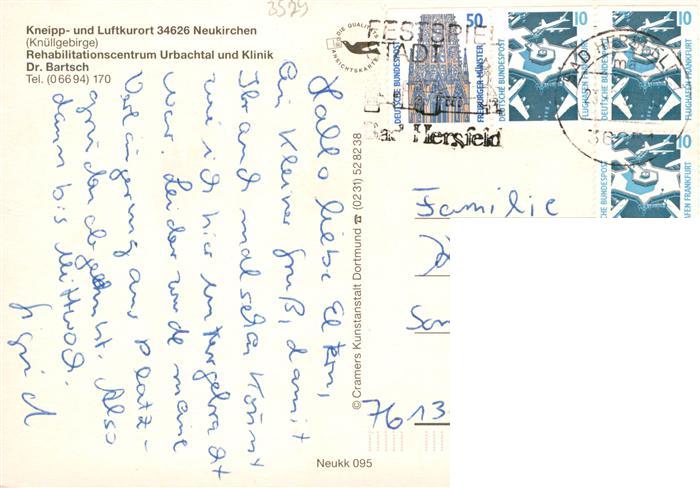 3529
Kneipp- und Luftkurort 34626 Neukirchen
(Knüllgebirge)
Rehabilitationscentrum Urbachtal und Klinik
Dr. Bartsch
Tel. (0 66 94) 170
DIE QUALITÄTS
ANSICHTSKARTE
FESTSPIEL
STADT
Bad Hersfeld
50
DEUTSCHE BUNDESPOST
FREIBURGER MÜNSTER
10
DEUTSCHE BUNDESPOST
FLUGHAFEN FRANKFURT
10
FLUGHAFEN FRANKFURT
10
CHE BUNDESPOST
AFEN FRANKFURT
BAD HERSFELD
Hallo liebe Eltern,
ein kleiner Gruß, damit
Ihr and mal sehen könnt
wie ich hier untergebracht
war. Leider wurde meine
Verlängerung aus Platz-
gründen abgelehnt. Also
dann bis Mittwoch.
Sigrid
© Cramers Kunstanstalt Dortmund ☎ (0231) 528238
Familie
Son
7613
Neukk 095